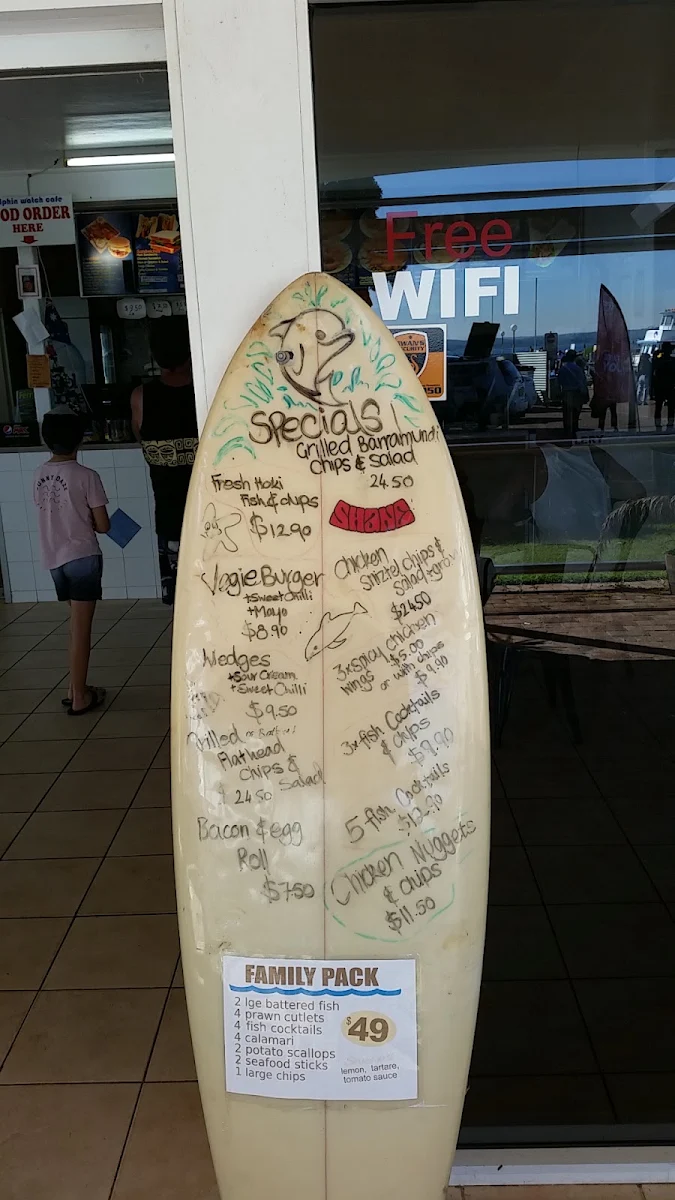 phin watch cafe
OD ORDER
HERE
Free
WIFI
SECURITY
SUNNY DAZE
Specials
Grilled Barramundi
Chips & Salad
24.50
Fresh Hoki
Fish & chips
$12.90
SHANE
Vegie Burger
+ Sweet Chilli
+ Mayo
$8.90
Wedges
+ Sour Cream
+ Sweet Chilli
$9.50
Grilled or Batter
Flathead
Chips &
Salad
$24.50
Bacon & egg
Roll
$7.50
Chicken
chips &
Salad +
$24.50
3x Spicy chicken
wings $5.00
or with chips
$9.90
3x fish Cocktails
& chips
$9.90
5 fish Cocktails
Chicken Nuggets
& chips
$11.50
FAMILY PACK
2 lge battered fish
4 prawn cutlets
4 fish cocktails
4 calamari
2 potato scallops
2 seafood sticks
1 large chips
$49
lemon, tartare,
tomato sauce